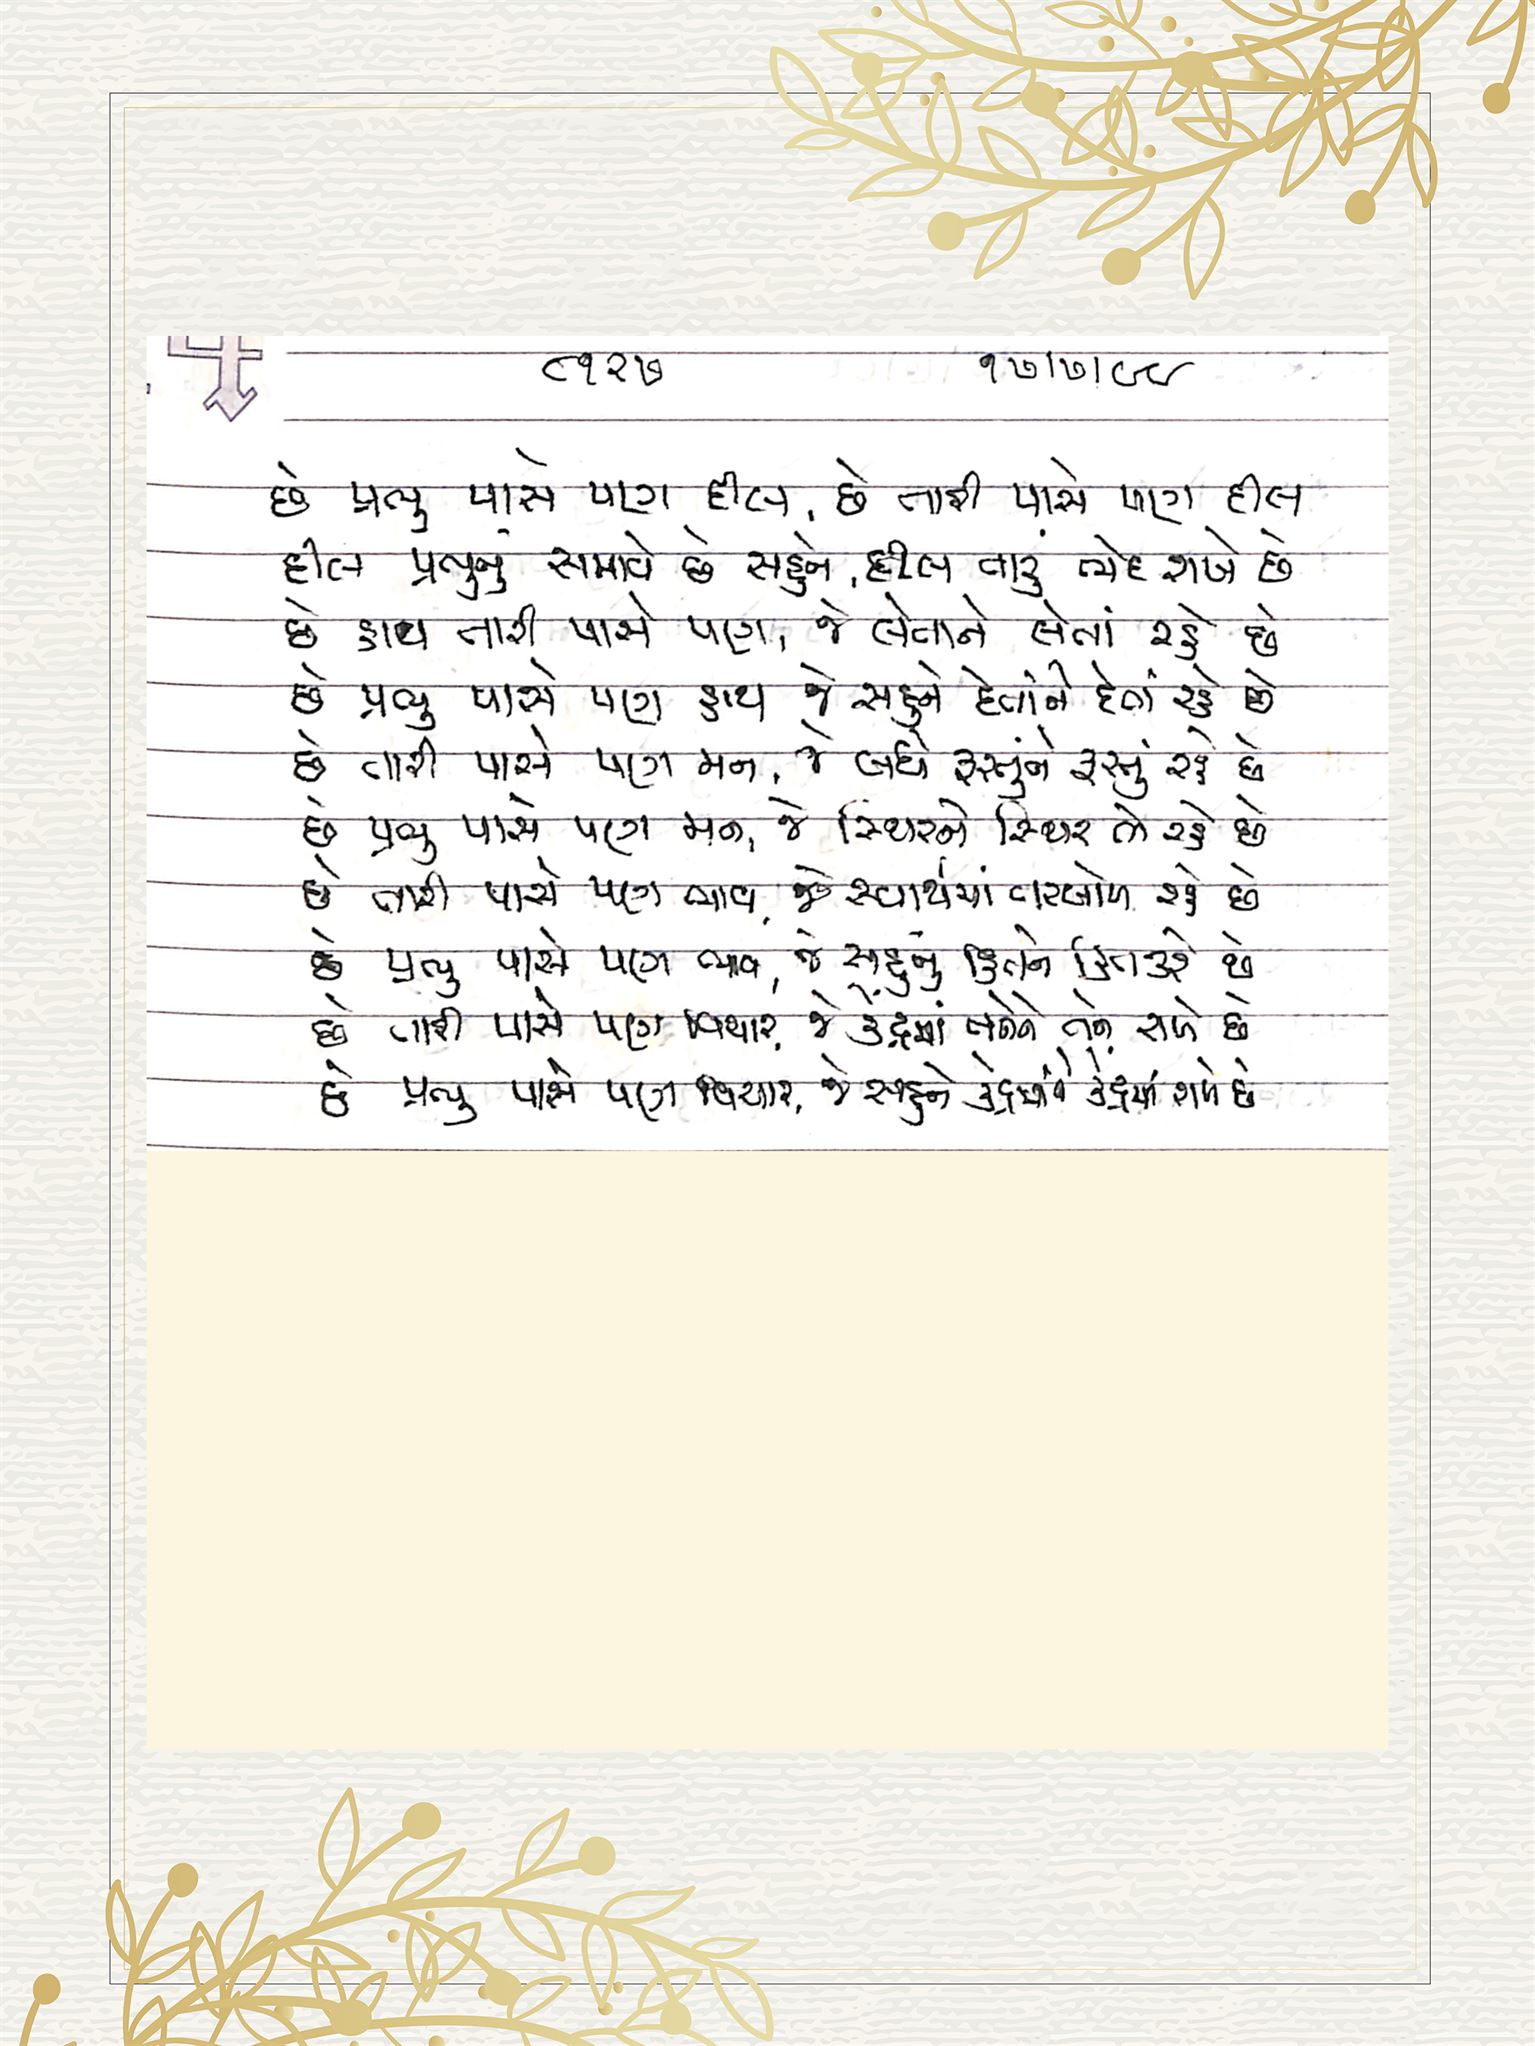 ૮૧૨૭ ૧૭/૭/૯૯
છે પ્રભુ પાસે પણ દીલ, છે તારી પાસે પણ દીલ
દીલ પ્રભુનું સમાવે છે સહુને, દીલ તારું ભેદ રાખે છે
છે હાથ તારી પાસે પણ, જે લેતાને લેતાં રહે છે
છે પ્રભુ પાસે પણ હાથ જે સહુને દેતાંને દેતાં રહે છે
છે તારી પાસે પણ મન, જે બધે ફરતુંને ફરતું રહે છે
છે પ્રભુ પાસે પણ મન, જે સ્થિરને સ્થિર તો રહે છે
છે તારી પાસે પણ ભાવ, જે સ્વાર્થમાં તરબોળ રહે છે
છે પ્રભુ પાસે પણ ભાવ, જે સહુનું હિતને હિત કરે છે
છે તારી પાસે પણ વિચાર, જે કેંદ્રમાં તનેને તને રાખે છે
છે પ્રભુ પાસે પણ વિચાર, જે સહુને કેંદ્રમાંને કેંદ્રમાં રાખે છે